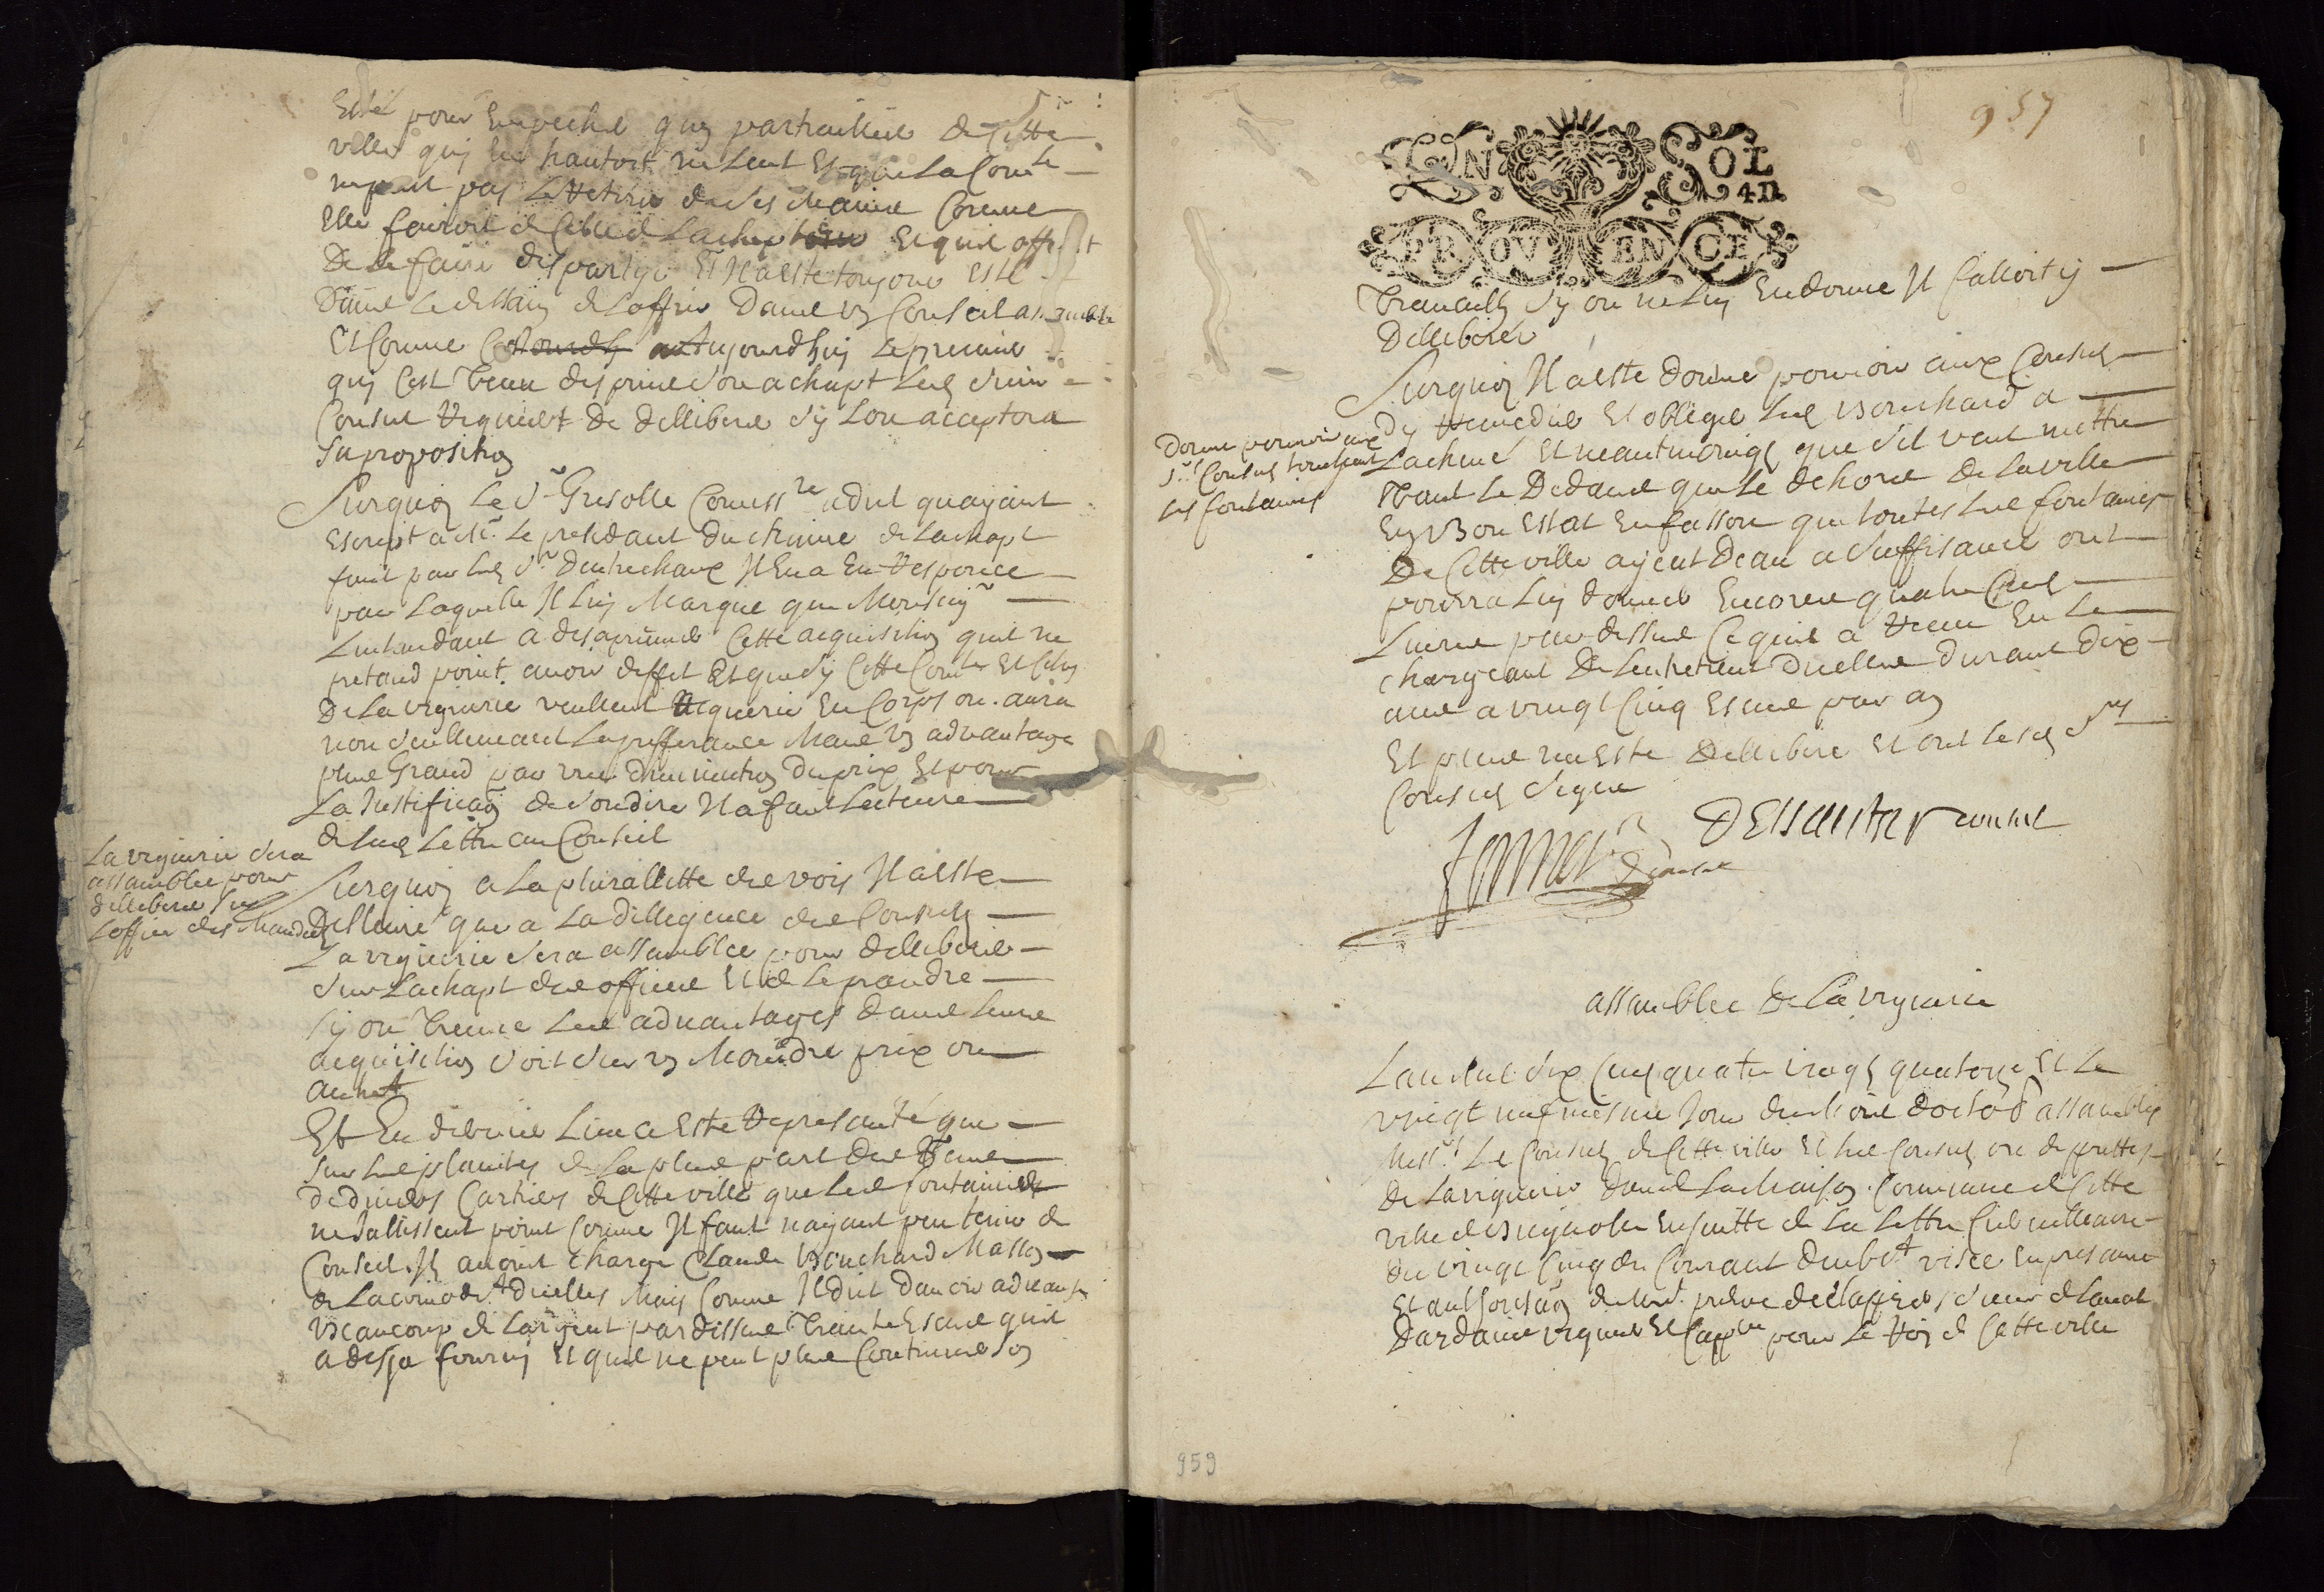 Esté pour empeche quun particullier de cette
ville quy en hautoit ne leut Et que la Com.te
ne peut pas le retirer de ses mains Comme
Elle fairoit de celles de lachepteur Et quil offroit
De le faire des partyr Et Na esté toujours esté
Dans le dessain de loffrir Dans un Conseil assemblé
Et Comme aujourdhuy le premier
quy cest tenu despuis son achapt les sieurs
Consuls requiert de dellibere sy lon acceptera
sa proposition
Surquoy le Sr Gresolle Comiss.re a dit quayant
Escript a M.r le presidant du Chaine de lachapt
fait par les Srs dentrechaux Il en a eu response
par laquelle Il luy Marque que Monseig.r
Lintandant a desaprouvé cette acquisition quil ne
pretand point avoir deffet Et que sy Cette Com.te Et Celles
De la viguerie veullent acquerir En Corps on aura
non seullement la prefferance Mais un advantage
plus Grand par une diminution du prix Et pour
La Justificaon de son dire Il a fait Lecture
de lad Lettre au Conseil
La viguerie sera
assamblee pour
dellibere sur
loffice des Maudes
Surquoy a la plurallitte des vois Il a esté
Dellibere que a la dilligence des Consuls
La viguerie sera assamblée pour dellibere
sur Lachapt des offices Et de le prandre
sy on treuve les advantages dans leur
acquisition soit sur un Moindre prix ou
autre
Et En dernier Lieu a Esté represanté que
sur les plaintes de la plus part des
de divers Cartiers de Cette ville que les fontaines
ne Jallissent point Comme Il faut nayant peu tenir de
Conseil Ils auroint charge Claude Bouchard Masson
de lacomodem.t dicelles Mais Comme Il dit davoir advansé
Beaucoup de largent par dessus trante Escus quil
a desja fourny Et quil ne peut plus Continuer son
957
EN SOL
4D.
PROVENCE
travailh sy on ne luy En donne Il falloit y
Dellibere
Surquoy Il a esté donné pouvoir aux Consuls
Donne pouvoir aux
Srs Consuls touchant
les fontaines
dy remedier Et obliger led Bouchard a
Lachever Et neantmoings que sil veut mettre
tant le Dedans que le dehors de la ville
En Bon Estat En fasson que toutes les fontaines
De Cette ville ayent deau a suffisance ont
pourra luy donner Encore quatre Cens
Livres par dessus Ce quil a receu En le
Chargeant de lentretient dicelles durant dix
ans a vingt Cinq Escus par an
Et plus na Esté Dellibere Et ont lesd Srs
Consuls signé
consul
consul
assamblée de la viguerie
Lan Mil six Cens quatre vingts quatorze Et le
vingt neufviesme Jour du Mois doctob.e assamblés
Mess.rs Le Consuls de Cette ville Et les Consuls ou depputtes
de la viguerie dans la Maison Commune de Cette
ville de Brignolle En suitte de la Lettre Circullaire
du vingt Cinq du Courant visée En presance
Et authorisaon de
Dardaine viguier Et Capp.ne pour le Roy de Cette ville
959